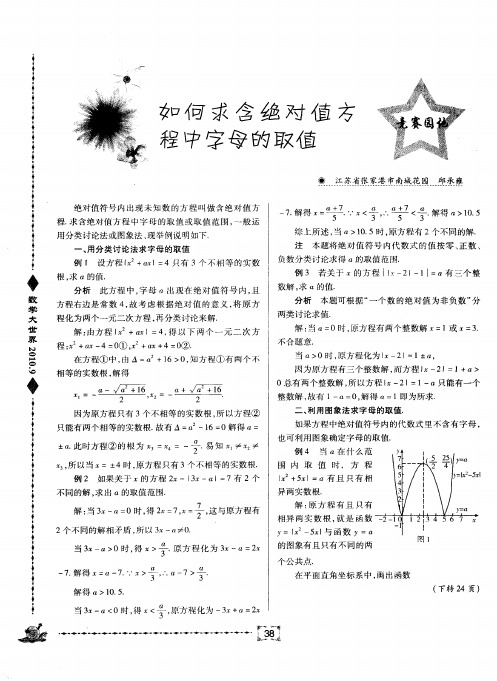 如何求含绝对值方
程中字母的取值
竞赛园地
江苏省张家港市南城花园 邱承雍
绝对值符号内出现未知数的方程叫做含绝对值方
程. 求含绝对值方程中字母的取值或取值范围,一般运
用分类讨论法或图象法. 现举例说明如下.
一、用分类讨论法求字母的取值
例 1 设方程|x²+ax|=4 只有 3 个不相等的实数
根,求 a 的值.
分析 此方程中,字母 a 出现在绝对值符号内,且
方程右边是常数 4,故考虑根据绝对值的意义,将原方
程化为两个一元二次方程,再分类讨论来解.
解:由方程|x²+ax|=4,得以下两个一元二次方
程:x²+ax-4=0①,x²+ax+4=0②.
在方程①中,由 Δ=a²+16>0,知方程①有两个不
相等的实数根,解得
x₁ = - (a-√(a²+16))/2 , x₂ = - (a+√(a²+16))/2 .
因为原方程只有 3 个不相等的实数根,所以方程②
只能有两个相等的实数根. 故有 Δ=a²-16=0 解得 a=
±4. 此时方程②的根为 x₃ = x₄ = - a/2 . 易知 x₁≠x₂≠
x₃,所以当 x=±4 时,原方程只有 3 个不相等的实数根.
例 2 如果关于 x 的方程 2x-|3x-a|=7 有 2 个
不同的解,求出 a 的取值范围.
解:当 3x-a=0 时,得 2x=7,x= 7/2 ,这与原方程有
2 个不同的解相矛盾,所以 3x-a≠0.
当 3x-a>0 时,得 x> a/3 . 原方程化为 3x-a=2x
-7. 解得 x=a-7. ∵x> a/3 ,∴a-7> a/3 .
解得 a>10.5.
当 3x-a<0 时,得 x< a/3 ,原方程化为 -3x+a=2x
-7. 解得 x= (a+7)/5 . ∵x< a/3 ,∴ (a+7)/5 < a/3 . 解得 a>10.5
综上所述,当 a>10.5 时,原方程有 2 个不同的解.
注 本题将绝对值符号内代数式的值按零、正数、
负数分类讨论求得 a 的取值范围.
例 3 若关于 x 的方程||x-2|-1|=a 有三个整
数解,求 a 的值.
分析 本题可根据“一个数的绝对值为非负数”分
两类讨论求值.
解:当 a=0 时,原方程有两个整数解 x=1 或 x=3.
不合题意.
当 a>0 时,原方程化为|x-2|=1±a,
因为原方程有三个整数解,而方程|x-2|=1+a>
0 总有两个整数解,所以方程|x-2|=1-a 只能有一个
整数解,故有 1-a=0,解得 a=1 即为所求.
二、利用图象法求字母的取值.
如果方程中绝对值符号内的代数式里不含有字母,
也可利用图象确定字母的取值.
例 4 当 a 在什么范
围内取值时, 方程
|x²+5x|=a 有且只有相
异两实数根.
解:原方程有且只有
相异两实数根,就是函数
y=|x²-5x|与函数 y=a
的图象有且只有不同的两
个公共点.
在平面直角坐标系中,画出函数
y
7
6
5
4
3
2
1
(5/2, 25/4)
y=a
y=|x²-5x|
-2 -1 0 1 2 3 4 5 6 7 x
-1
图 1
(下转 24 页)
数学大世界 2010.9
38